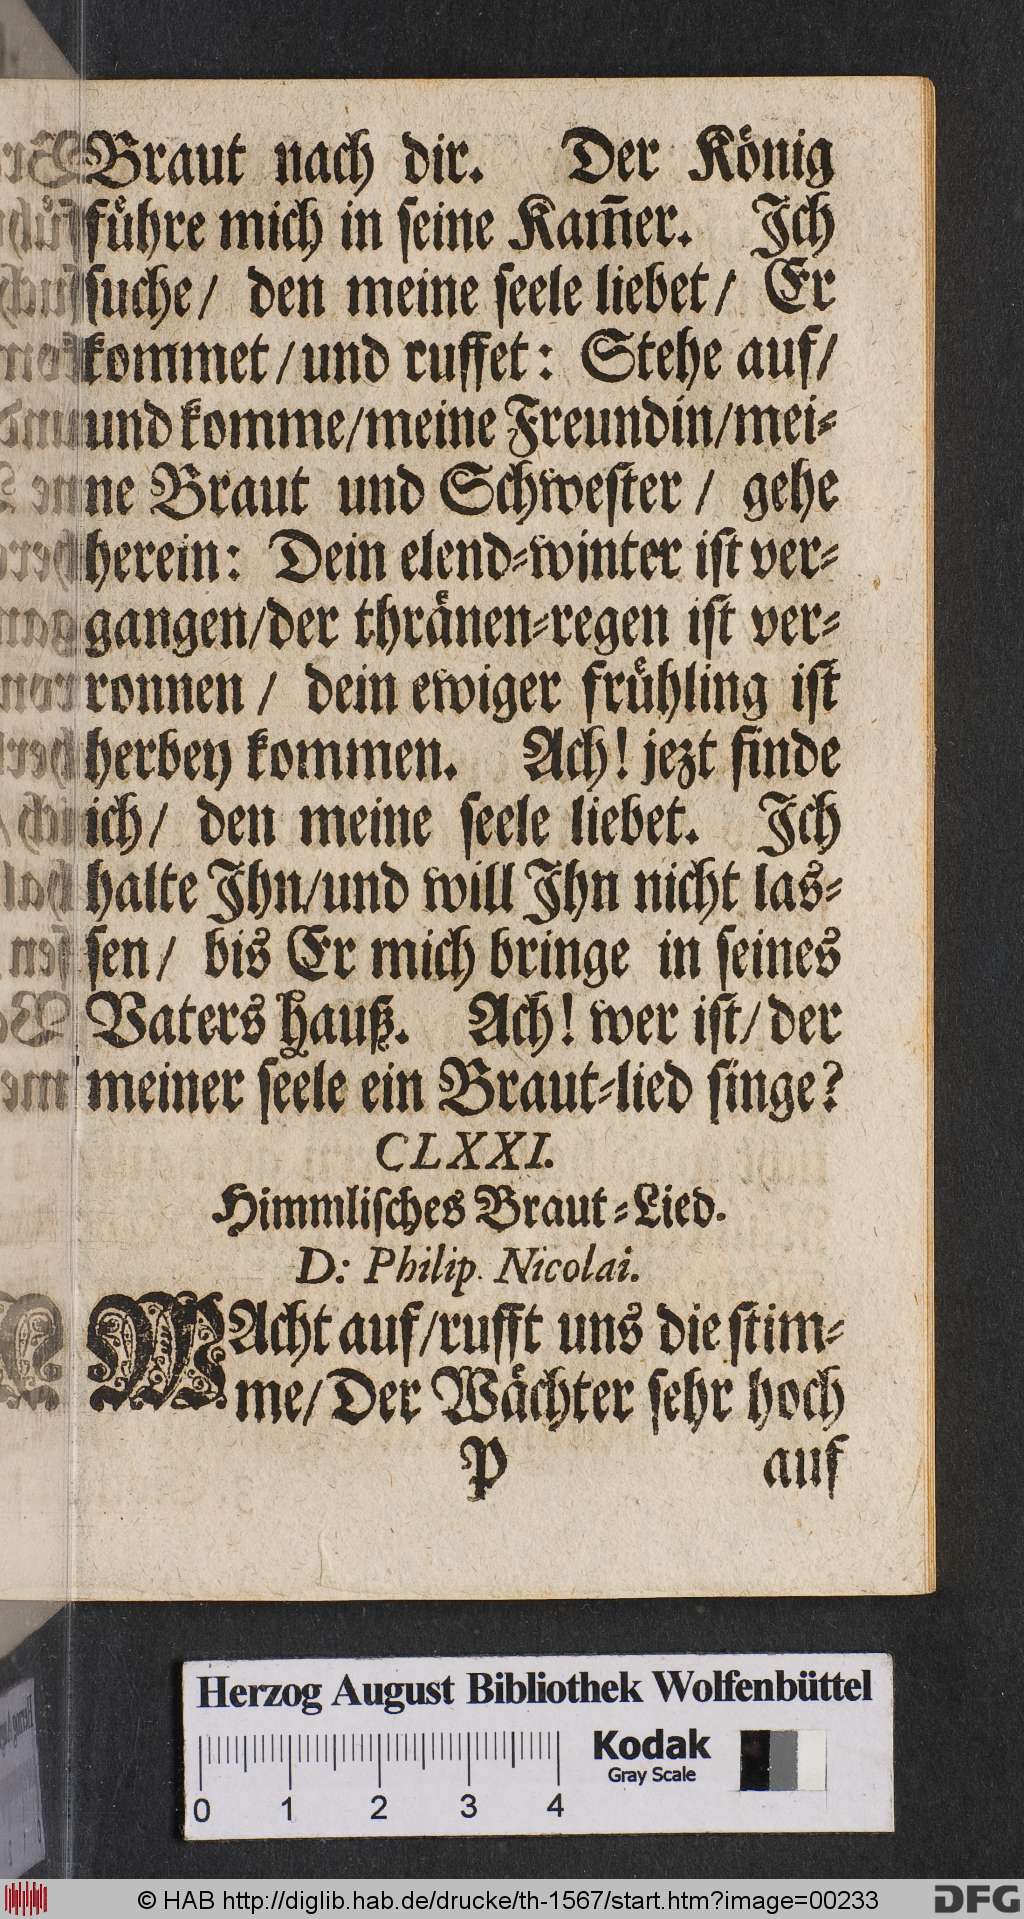 Braut nach dir. Der König
fuͤhre mich in seine Kam̄er. Ich
suche/ den meine seele liebet/ Er
kommet/und ruffet: Stehe auf/
und komme/meine Freundin/mei⸗
ne Braut und Schwester/ gehe
herein: Dein elend⸗winter ist ver⸗
gangen/der thraͤnen⸗regen ist ver⸗
ronnen/ dein ewiger fruͤhling ist
herbey kommen. Ach! jezt finde
ich/ den meine seele liebet. Ich
halte Ihn/und will Ihn nicht las⸗
sen/ bis Er mich bringe in seines
Vaters Hauß. Ach! wer ist/der
meiner seele ein Braut⸗lied singe?
CLXXI.
Himmlisches Braut⸗Lied.
D: Philip. Nicolai.
WAcht auf/rufft uns die stim⸗
me/Der Waͤchter sehr hoch
P auf
Herzog August Bibliothek Wolfenbüttel
Kodak
Gray Scale
0 1 2 3 4
© HAB http://diglib.hab.de/drucke/th-1567/start.htm?image=00233
DFG